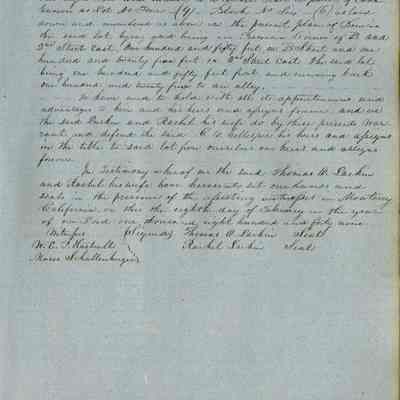 known as Lot No Four (4) Block No Six (6) as laid
down and numbered as above in the present plan of Benicia
the said lot lying and being in Benicia Corner of D and
2nd Street East, One hundred and fifty feet on D Street and one
hundred and twenty five feet on 2nd Street East. The said lot
being one hundred and fifty feet front and running back
one hundred and twenty five to an alley.
To have and to hold with all its appurtenances and
advantages to him and his heirs and assigns forever and we
the said Larkin and Rachel his wife do by these presents War
rant and defend the said C. V. Gillespie his heirs and assigns
in the title to said lot from ourselves our heirs and assigns
forever.
In Testimony whereof we the said Thomas O. Larkin
and Rachel his wife have hereunto set our hands and
seals in the presence of the attesting witnesses in Monterey
California on this the eighth day of February in the year
of our Lord one thousand eight hundred and forty nine
Witness (Signed) Thomas O Larkin Seal
W. C. Rachel Larkin Seal
Moses Schallenberger